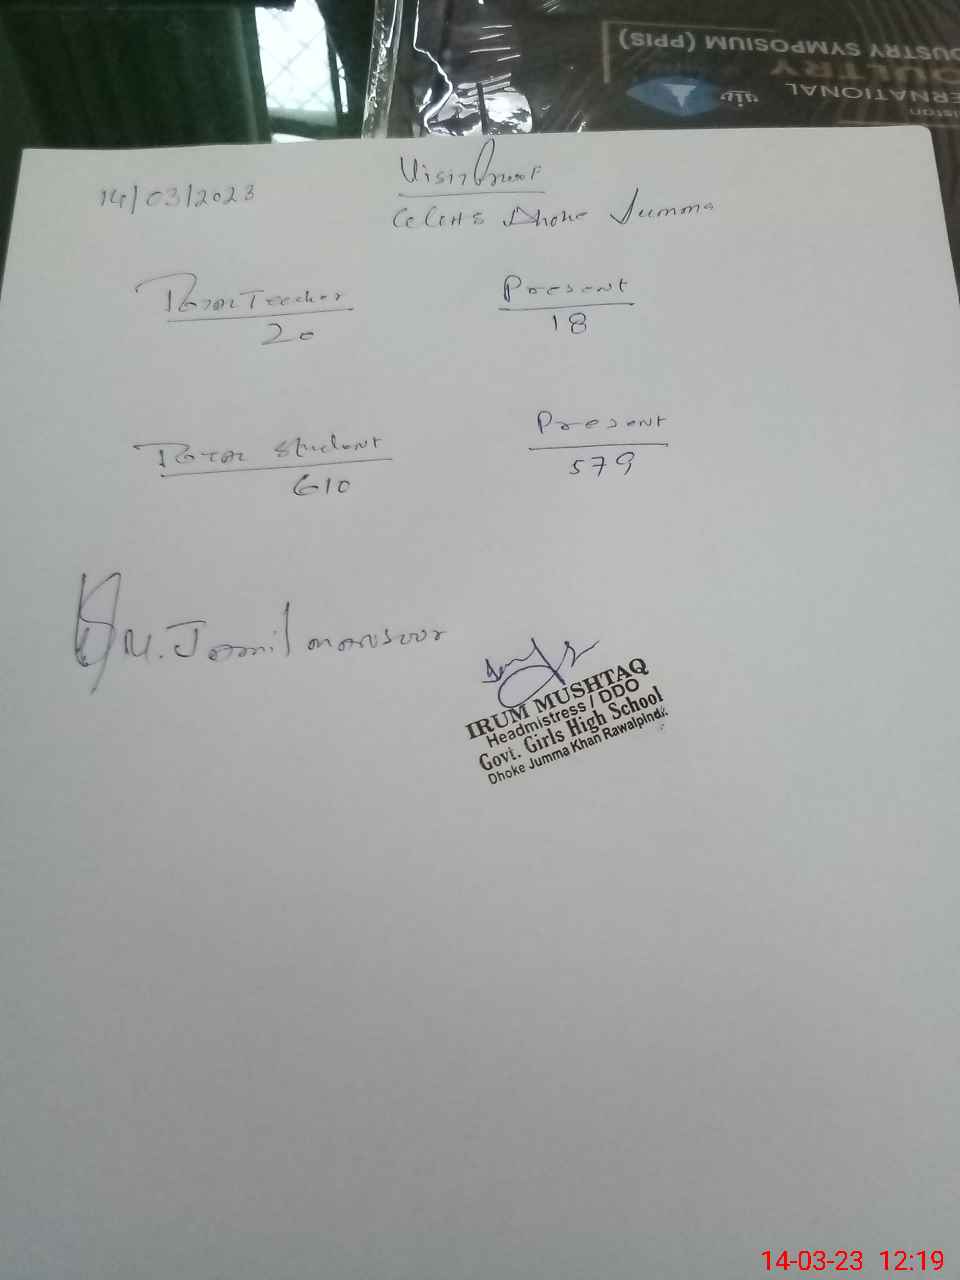 (PPIS) USTRY SYMPOSIUM
OULTRY
ERNATIONAL
14/03/2023
Visit Proof
GGHS Dhoke Jumma
Total Teacher
Present
20
18
Total Student
Present
610
579
M. Jamil mansoor
IRUM MUSHTAQ
Headmistress / DDO
Govt. Girls High School
Dhoke Jumma Khan Rawalpindi.
14-03-23 12:19